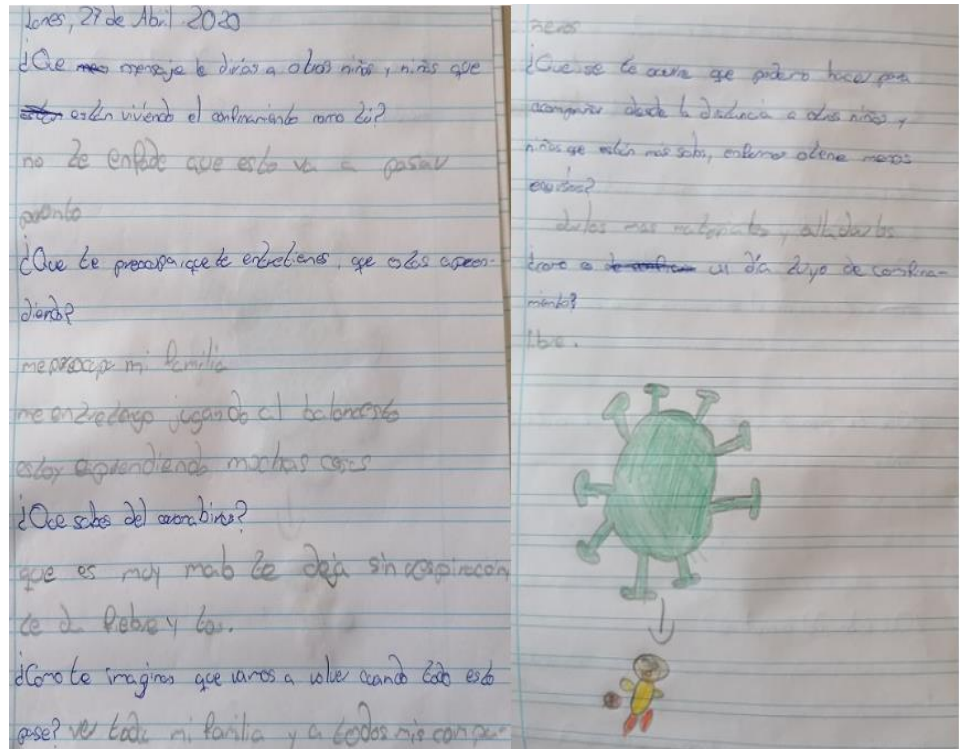 Lunes, 27 de Abril 2020
¿Que mensaje le dirias a otros niños, niñas que
están viviendo el confinamiento como tú?
no te enfade que esto va a pasar
pronto
¿Que te preocupa, que te entretienes, que estas apren-
diendo?
me preocupa mi familia
me entretengo jugando al baloncesto
estoy aprendiendo muchas cosas
¿Que sabes del coronabirus?
que es muy malo te deja sin respiracion
te da fiebre y tos.
¿Como te imaginas que vamos a volver cuando todo esto
pase? ver toda mi familia y a todos mis compa-
ñeros
¿Que se te ocurre que podemos hacer para
acompañar desde la distancia a otros niños y
niñas que están más solos, enfermos o tiene menos
darlos mas materiales, alludarlos
como es un día tuyo de confina-
miento?
libre.